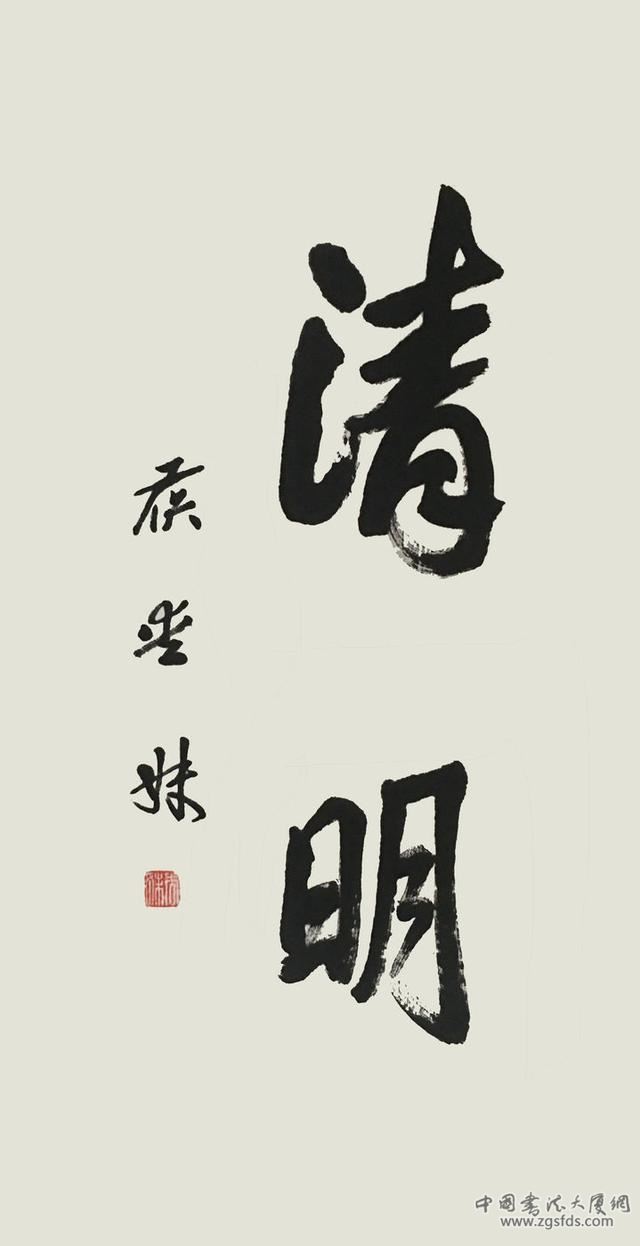 清明
侯堂妹
中国书法大厦網
www.zgsfds.com